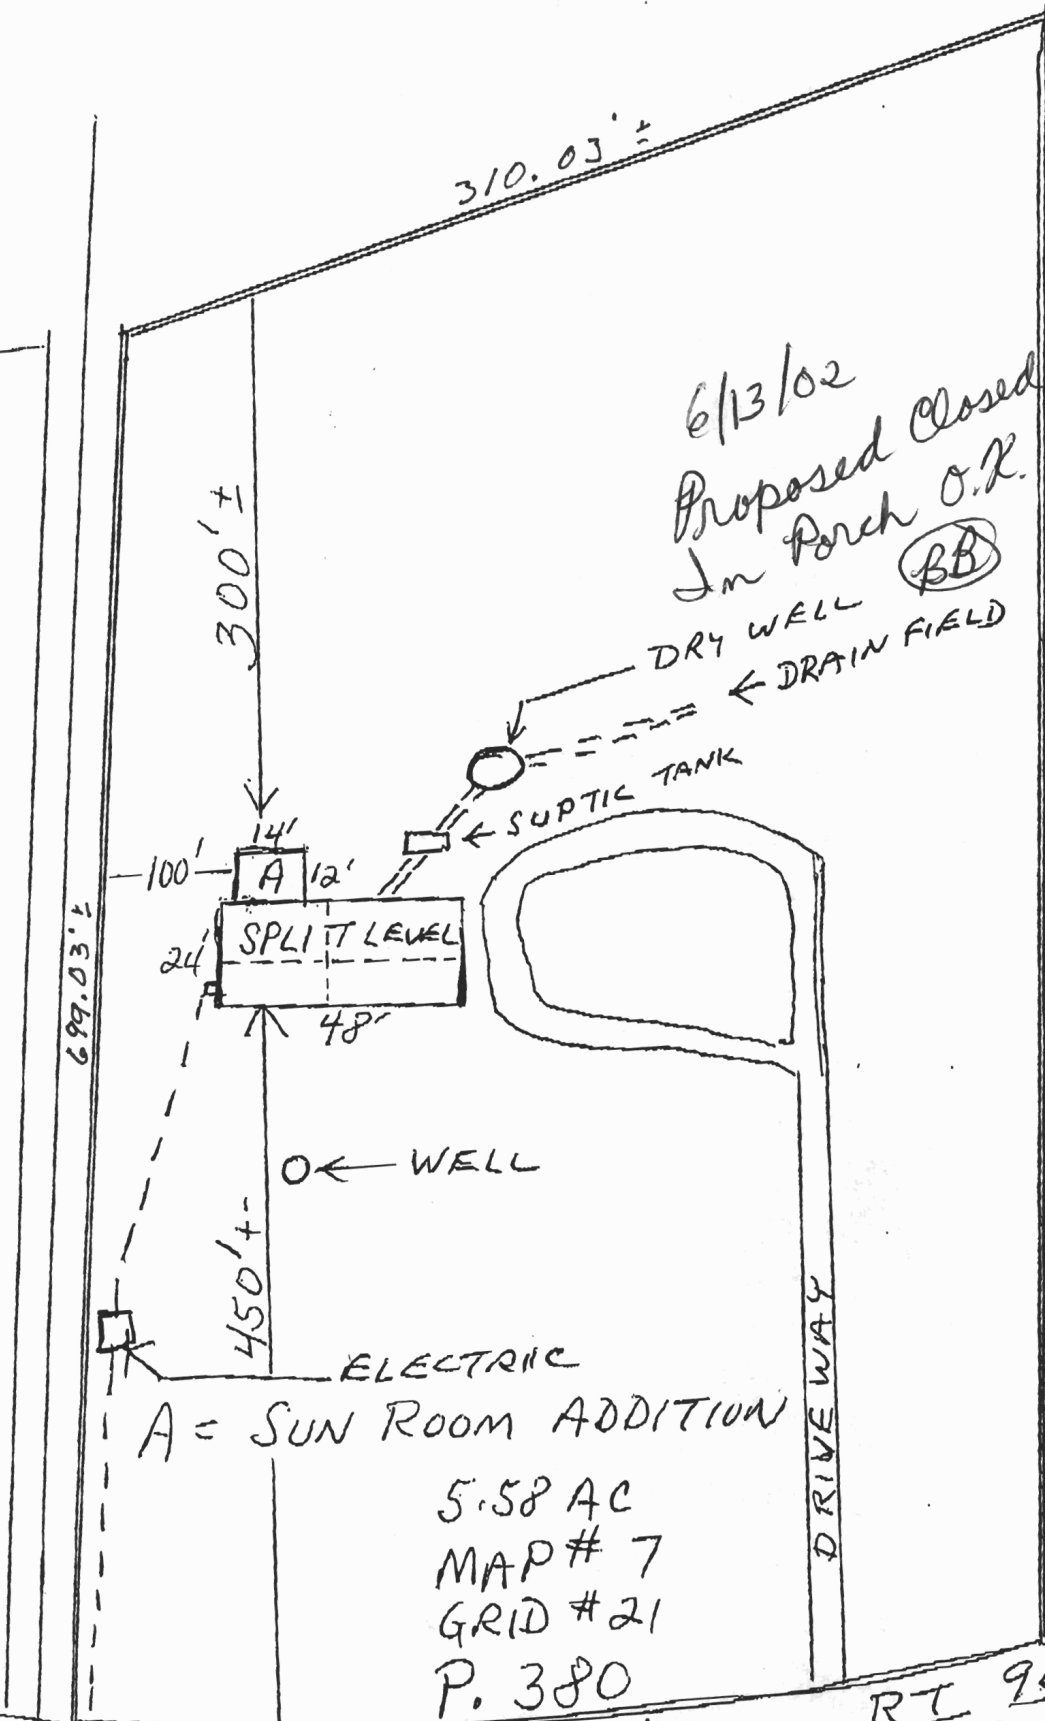 310.03' ±
6/13/02
Proposed Closed
In Porch O.K.
BB
300' ±
DRY WELL
← DRAIN FIELD
SUPTIC TANK
14'
100'
A
12'
SPLIT LEVEL
24'
48'
699.03' ±
WELL
450' +-
ELECTRIC
A = SUN ROOM ADDITION
DRIVEWAY
5.58 AC
MAP # 7
GRID # 21
P. 380
RT